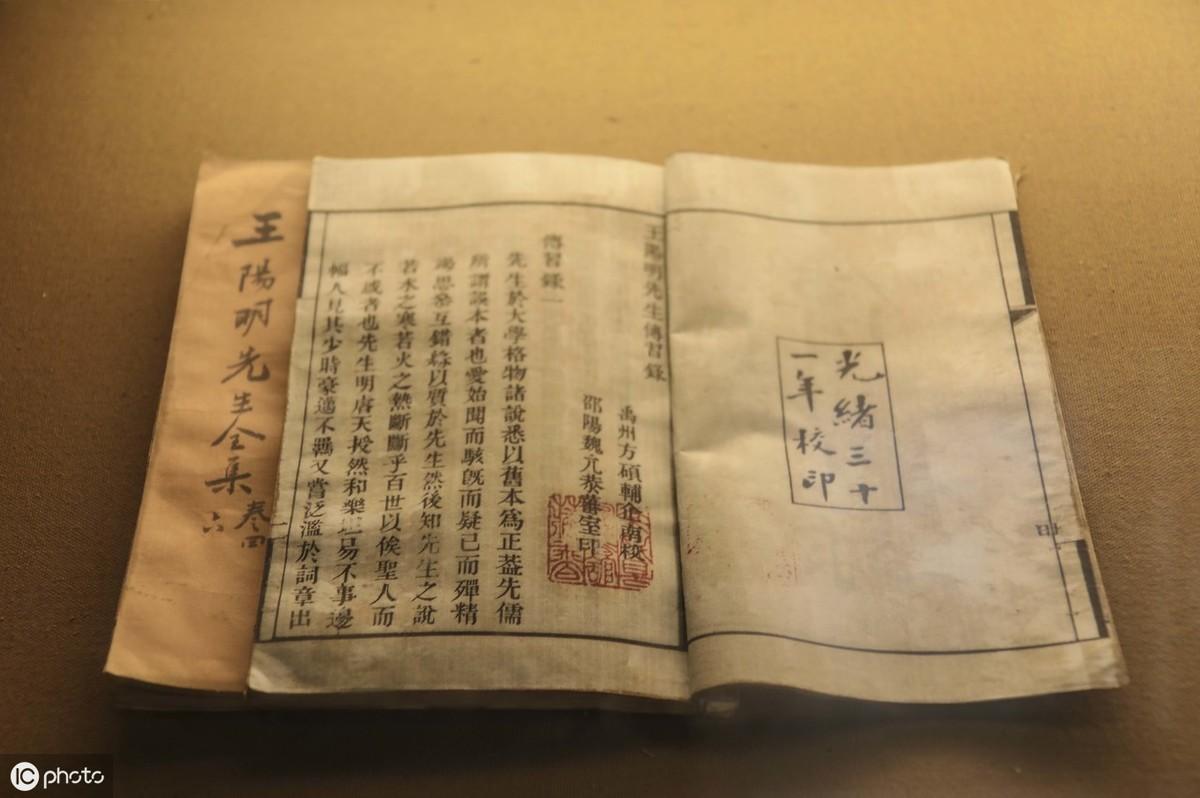 光緒三十
一年校印
王陽明先生傳習錄
禹州方碩輔企南校
郃陽魏元㷛蕐室印
傳習錄一
先生於大學格物諸說悉以舊本為正葢先儒
所謂誤本者也愛始聞而駭旣而疑已而殫精
竭思參互錯綜以質於先生然後知先生之說
若水之寒若火之熱斷斷乎百世以俟聖人而
不惑者也先生明睿天授然和樂坦易不事邊
幅人見其少時豪邁不羈又嘗泛濫於詞章出
王陽明先生全集
卷四
六
IC photo